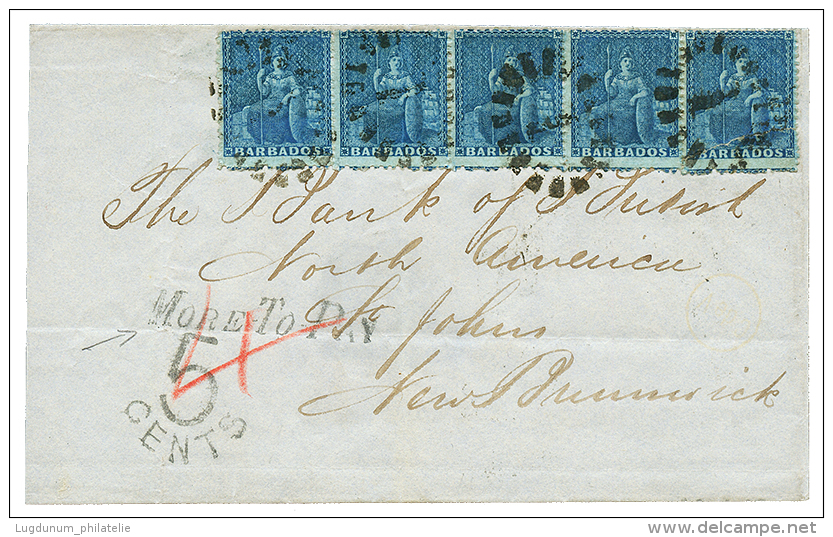 BARBADOS BARBADOS BARBADOS BARBADOS BARBADOS
The Bank of British
North America
St Johns
New Brunswick
MORE-TO-PAY
4
5
CENTS
Lugdunum_philatelie
www.delcampe.net